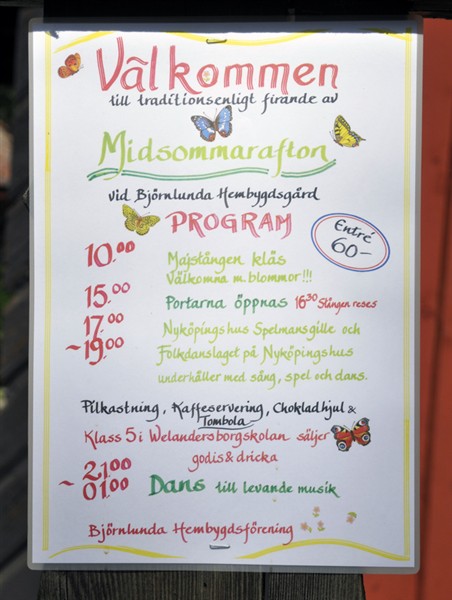 Välkommen
till traditionsenligt firande av
Midsommarafton
vid Björnlunda Hembygdsgård
PROGRAM
Entré
60-
10.00 Majstången kläs
Välkomna m. blommor!!!
15.00 Portarna öppnas 16³⁰ Stången reses
17.00 Nyköpingshus Spelmansgille och
~19.00 Folkdanslaget på Nyköpingshus
underhåller med sång, spel och dans.
Pilkastning, Kaffeservering, Chokladhjul &
Tombola
Klass 5 i Welandersborgskolan säljer
godis & dricka
21.00
~01.00 Dans till levande musik
Björnlunda Hembygdsförening